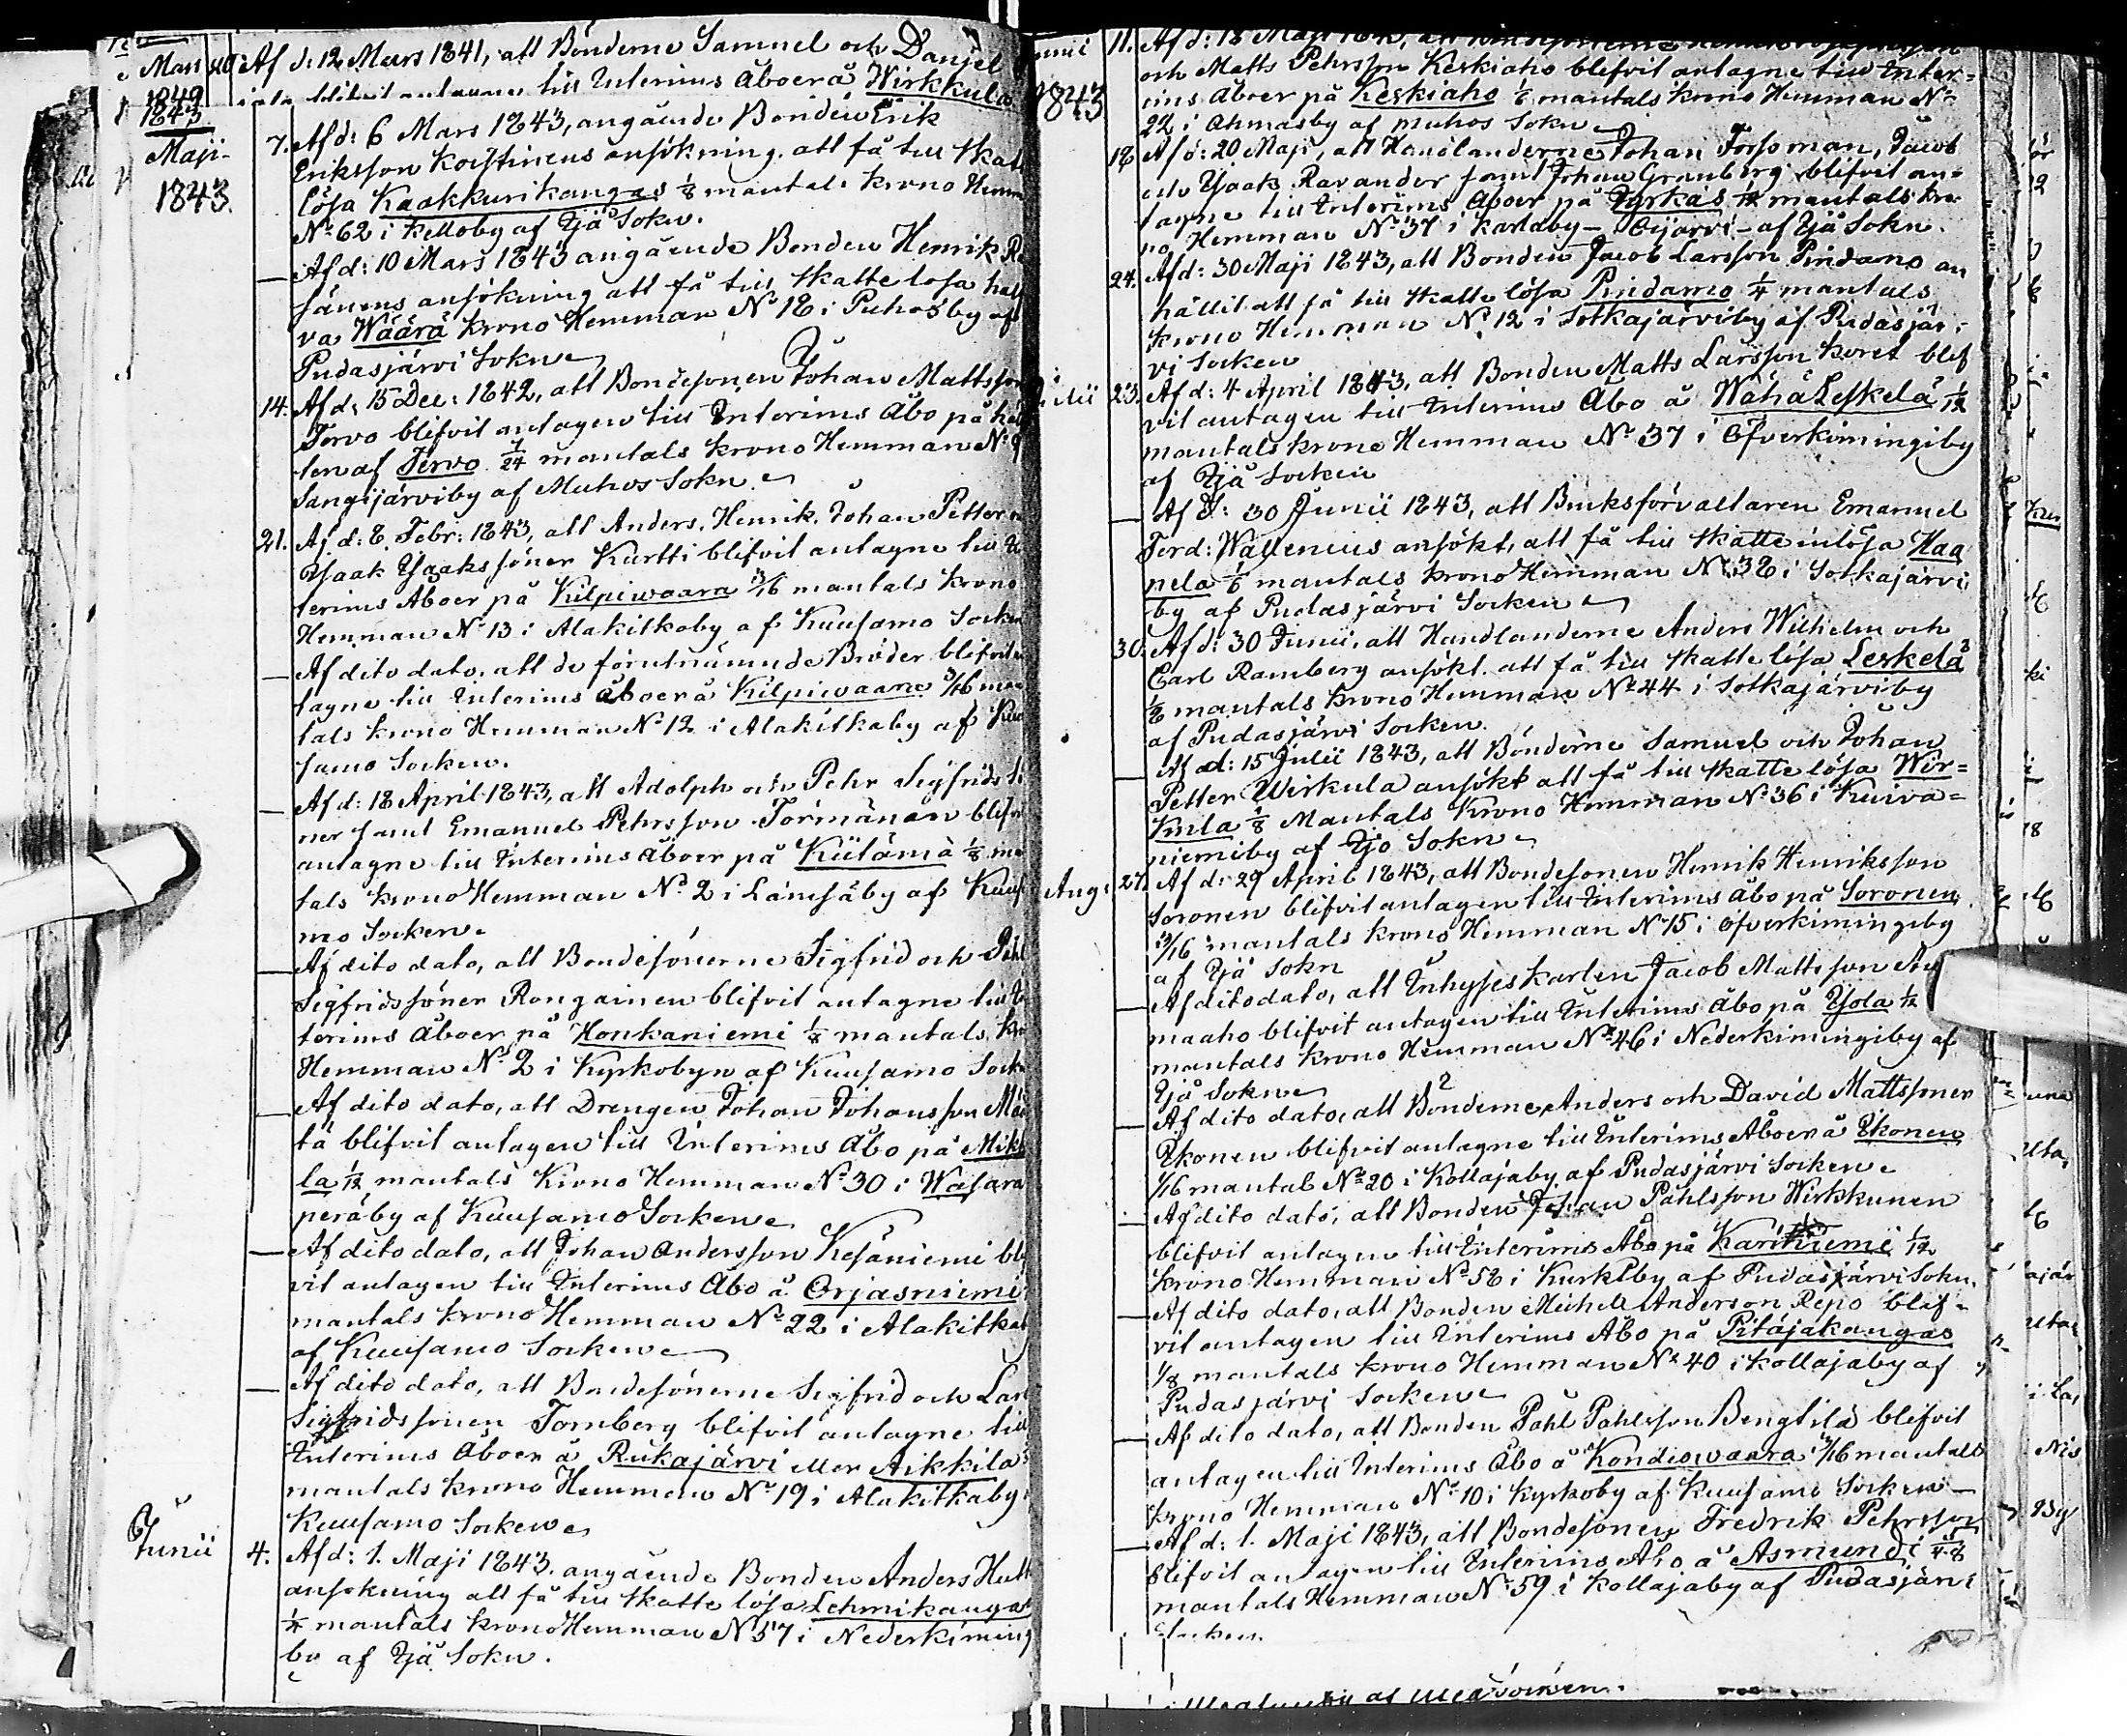 Mars 20 Af d: 12 Mars 1841, att Bönderne Samuel och Danjel
blifvit antagne till Interims Åboer å Wirkkula
1843
Maji
1843.
7. Af d: 6 Mars 1843, angående Bonden Erik
Eriksson Koistinens ansökning att få till skatt
lösa Kaakkurikangas 1/8 mantals krono Hemm
No 62 i Kelloby af Ijå Sokn.
— Af d: 10 Mars 1843 angående Bonden Henrik
sänens ansökning att få till skatte lösa hal
va Wäärä krono Hemman No 18 i Puhosby af
Pudasjärvi Sokn
14. Af d: 15 Dec: 1842, att Bondesonen Johan Mattsson
Tervo blifvit antagen till Interims Åbo på hälf
ten af Tervo 7/24 mantals krono Hemman No 9
Sangijärviby af Muhos Sokn
21. Af d: 8 Febr: 1843, att Anders, Henrik, Johan Petter
Isaak Isaakssöner Kurtti blifvit antagne till
terims Åboer på Kilpiwaara 3/16 mantals krono
Hemman No 13 i Alakitkaby af Kuusamo Socken
— Af dito dato, att de förutnämnde Bröder blifvit
tagne till Interims Åboer å Kilpiwaara 3/16 man
tals krono Hemman No 12 i Alakitkaby af Kuu
samo Socken.
— Af d: 18 April 1843, att Adolph och Pehr Sigfrids
ner samt Emanuel Pehrsson Törmänän blifvit
antagne till Interims Åboer på Kiitämä 1/8 ma
tals krono Hemman No 2 i Lämsäby af Kuusa
mo Socken.
— Af dito dato, att Bondesönerne Sigfrid och Påhl
Sigfridssöner Rongainen blifvit antagne till
terims Åboer på Honkaniemi 1/8 mantals kro
Hemman No 2 i Kyrkobyn af Kuusamo Socken
— Af dito dato, att Drengen Johan Johansson Mää
tä blifvit antagen till Interims Åbo på Mikk
la 1/12 mantals Krono Hemman No 30 i Wasara
peräby af Kuusamo Socken
— Af dito dato, att Johan Andersson Kesäniemi blif
vit antagen till Interims Åbo å Orjasniemi
mantals krono Hemman No 22 i Alakitka
af Kuusamo Socken
— Af dito dato, att Bondesönerne Sigfrid och Lars
Sigfridssönen Tornberg blifvit antagne till
Interims Åboer å Rukajärvi eller Aikkila
mantals krono Hemman No 19 i Alakitkaby
Kuusamo Socken
Junii 4. Af d: 1. Maji 1843. angående Bonden Anders Hutt
ansökning att få till skatte lösa Lehmikangas
1/4 mantals krono Hemman No 57 i Nederkiming
by af Ijå Sokn.
Junii
1843
11. Af d: 18 Maji 1843, att
och Matts Pehrsson Keskiaho blifvit antagne till Inter=
rims Åboer på Keskiaho 1/8 mantals krono Hemman No
22 i Ahmasby af Muhos Sokn
18 Af d: 20 Maji, att Handlanderne Johan Forssman, Jacob
och Isaak Ravander samt Johan Granberg blifvit an=
tagne till Interims Åboer på Tyrkäs 1/12 mantals kro
no Hemman No 37 i Karlaby - Oijärvi - af Ijå Sokn.
24. Af d: 30 Maji 1843, att Bonden Jacob Larsson Pindamo an
hållit att få till skatte lösa Pindamo 1/4 mantals
krono Hemman No 12 i Sotkajärviby af Pudasjär-
vi Socken
Julii 23. Af d: 4 April 1843, att Bonden Matts Larsson Koret blif
vit antagen till Interims Åbo å Wähä Leskelä 1/12
mantals krono Hemman No 37 i Öfverkimingiby
af Ijå Socken
— Af d: 30 Junii 1843, att Bruksförvaltaren Emanuel
Ferd: Wallenius ansökt, att få till skatte inlösa Haa
pela 1/8 mantals krono Hemman No 32 i Sotkajärvi
by af Pudasjärvi Socken
30. Af d: 30 Junii, att Handlanderne Anders Wilhelm och
Carl Ramberg ansökt att få till skatte lösa Leskelä
1/8 mantals krono Hemman No 44 i Sotkajärviby
af Pudasjärvi Socken.
— Af d: 15 Julii 1843, att Bönderne Samuel och Johan
Petter Wirkula ansökt att få till skatte lösa Wir=
kula 1/8 Mantals Krono Hemman No 36 i Kuiva=
niemiby af Ijo Sokn
Aug: 27. Af d: 29 April 1843, att Bondesonen Henrik Henriksson
Soronen blifvit antagen till Interims Åbo på Soronen
13/16 mantals krono Hemman No 15 i Öfverkimingiby
af Ijå Sokn
— Af dito dato, att Inhyses karlen Jacob Mattsson
maaho blifvit antagen till Interims Åbo på Isola 1/12
mantals krono Hemman No 46 i Nederkimingiby af
Ijå Sokn
— Af dito dato, att Bönderne Anders och David Mattssoner
Ikonen blifvit antagne till Interims Åboer å Ikonen
1/16 mantal No 20 i Kollajaby af Pudasjärvi Socken
— Af dito dato, att Bonden Johan Påhlsson Wirkkunen
blifvit antagen till Interims Åbo på Kariniemi 1/12
krono Hemman No 58 i Kurkiby af Pudasjärvi Sokn.
— Af dito dato, att Bonden Michel Anderson Repo blif=
vit antagen till Interims Åbo på Pitäjäkangas
1/8 mantals krono Hemman No 40 i Kollajaby af
Pudasjärvi Socken
— Af dito dato, att Bonden Påhl Påhlsson Bengtilä blifvit
antagen till Interims Åbo å Kondiowaara 3/16 mantals
krono Hemman No 10 i Kyrkoby af Kuusamo Socken
— Af d: 1. Maji 1843, att Bondesonen Fredrik Pehrsson
blifvit antagen till Interims Åbo å Asmundi
mantals Hemman No 59 i Kollajaby af Pudasjärvi
Socken.